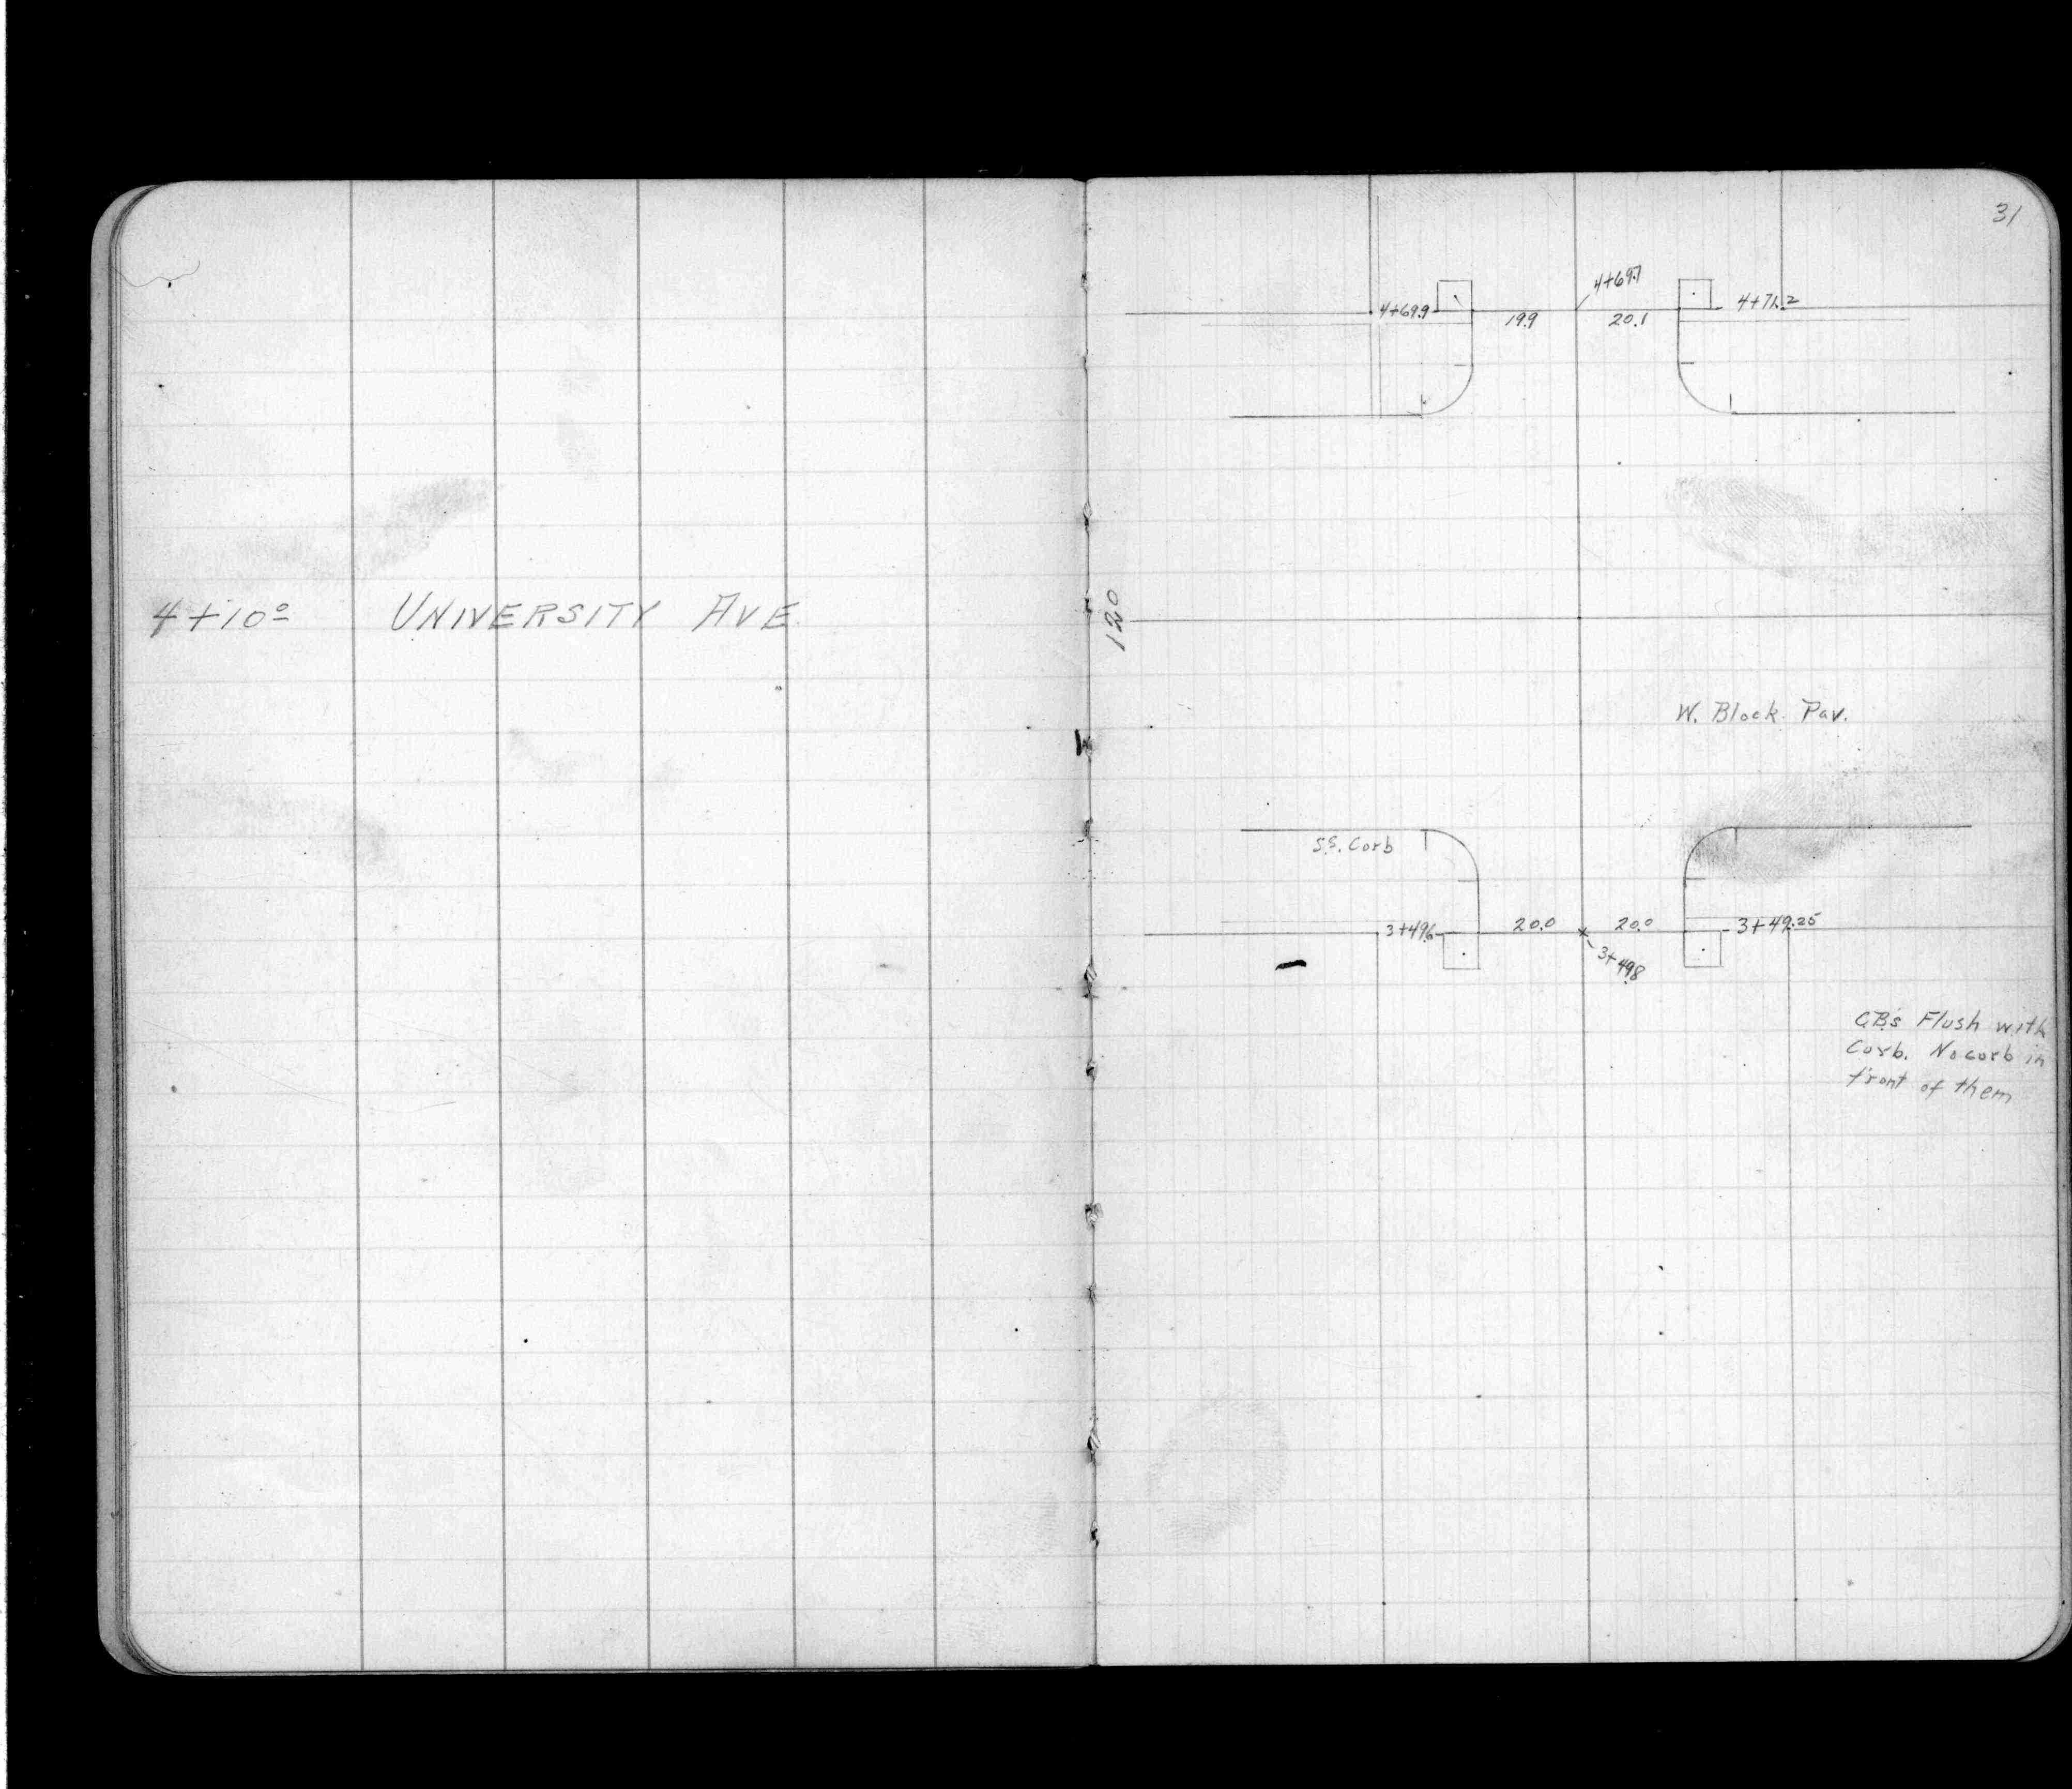 4+10º UNIVERSITY AVE.
31
4+69.7
4+69.9 19.9 20.1 4+71.2
120
W. Block Pav.
S.S. Corb
3+49.6 20.0 20.0 3+49.25
3+49.8
C.B.'s Flush with
Curb. No corb in
front of them